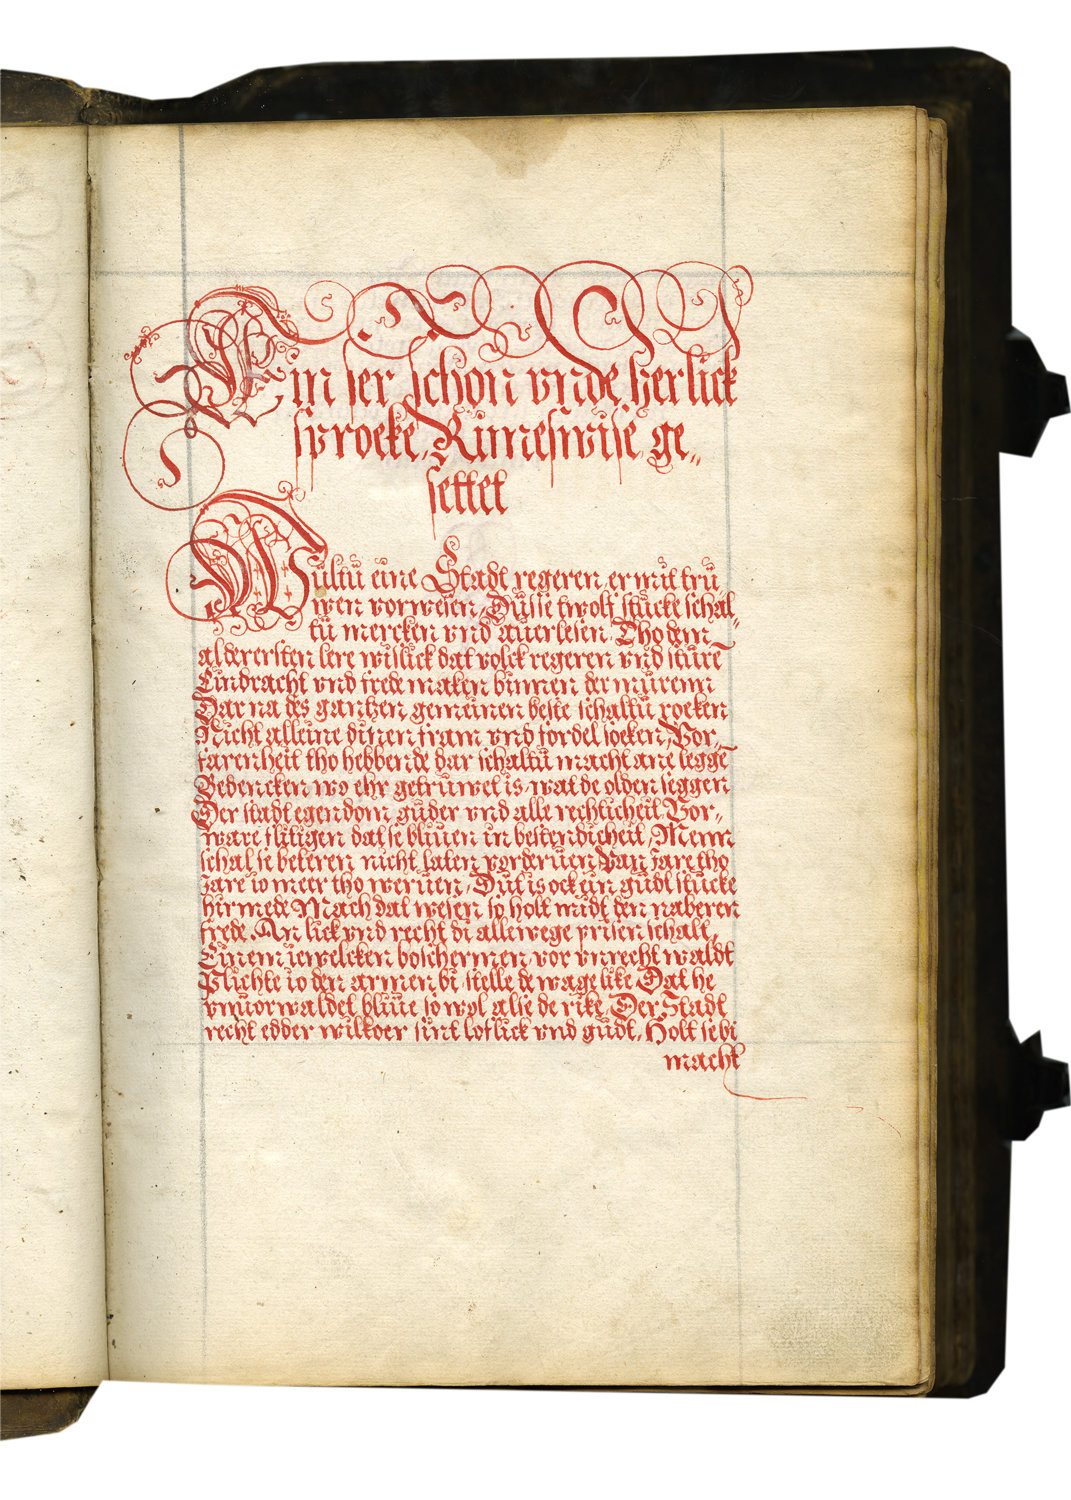 Ein ser schon vnde herlick
sproeke, Rimeswise ge„
settet
Wiltu eine Stadt regeren, er mit trü
wen vorwesen, Düsse twolf stücke schal„
tü mercken vnd auerlesen, Tho dem
alderersten lere wislick dat volck regeren vnd stüre
Eindracht vnd frede maken binnen der mürenn
Dar na des gantzen gemeinen beste schaltü roeken
Nicht alleine dinen fram vnd fordel soeken, Vor„
farenheit tho hebbende dar schaltü macht ane legge
Bedencken wo ehr getruwet is, wat de olden seggen
Der stadt egendom güder vnd alle rechticheit Vor„
ware flitigen dat se bliuen in bestendicheit, Menn
schal se beteren nicht laten vorderuen Van jare tho
jare io meer tho weruen, Dut is ock ein gudt stücke
hir mede Mach dat wesen so holt midt den naberen
frede, An lick vnd recht di allewege prisen schalt,
Einem iewelcken boschermen vor vnrecht waldt
Plichte io den armen bi stelle de wage like Dat he
vnuorwaldet bliue so wol alse de rike, Der Stadt
recht edder wilkoer sint loflick vnd gudt, Holt se bi
macht